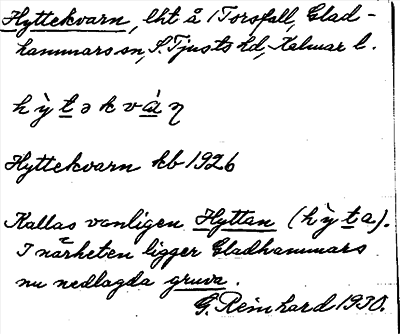 Hyttekvarn, lht å 1 Torsfall, Glad-
hammars sn, S. Tjusts hd, Kalmar l.
hy̆̀t̲əkvá̲η
Hyttekvarn kb 1926
Kallas vanligen Hyttan (hy̆̀t̲a).
I närheten ligger Gladhammars
nu nedlagda gruva.
G. Reinhard 1930.